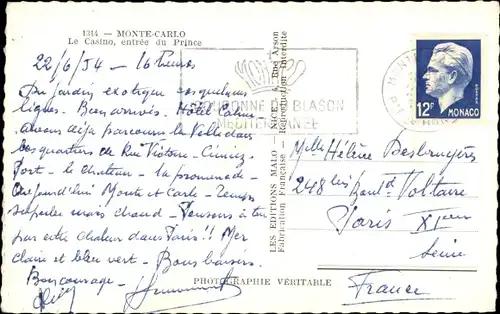 1314 — MONTE-CARLO
Le Casino, entrée du Prince
22/6/54 - 16 heures
Du jardin exotique ces quelques
lignes. Bon arrivés. Hôtel
avons déjà parcouru la Ville dans
les quartiers de Rue Victor - Cimiez
Port - le château - la promenade -
Aujourd'hui Monte et Carlo - Temps
superbe mais chaud - Pensons à toi
par cette chaleur dans Paris !! Mer
claire et bleu vert - Bons baisers.
Bon courage -
PHOTOGRAPHIE VÉRITABLE
LES EDITIONS MALO — NICE, 4, Rue Arson
Fabrication Française — Reproduction Interdite
COURONNE DU BLASON
MÉDITERRANÉE
12F MONACO
Melle Hélène Desbruyères
248 bis Boul^d Voltaire
Paris XI^em
Seine
France